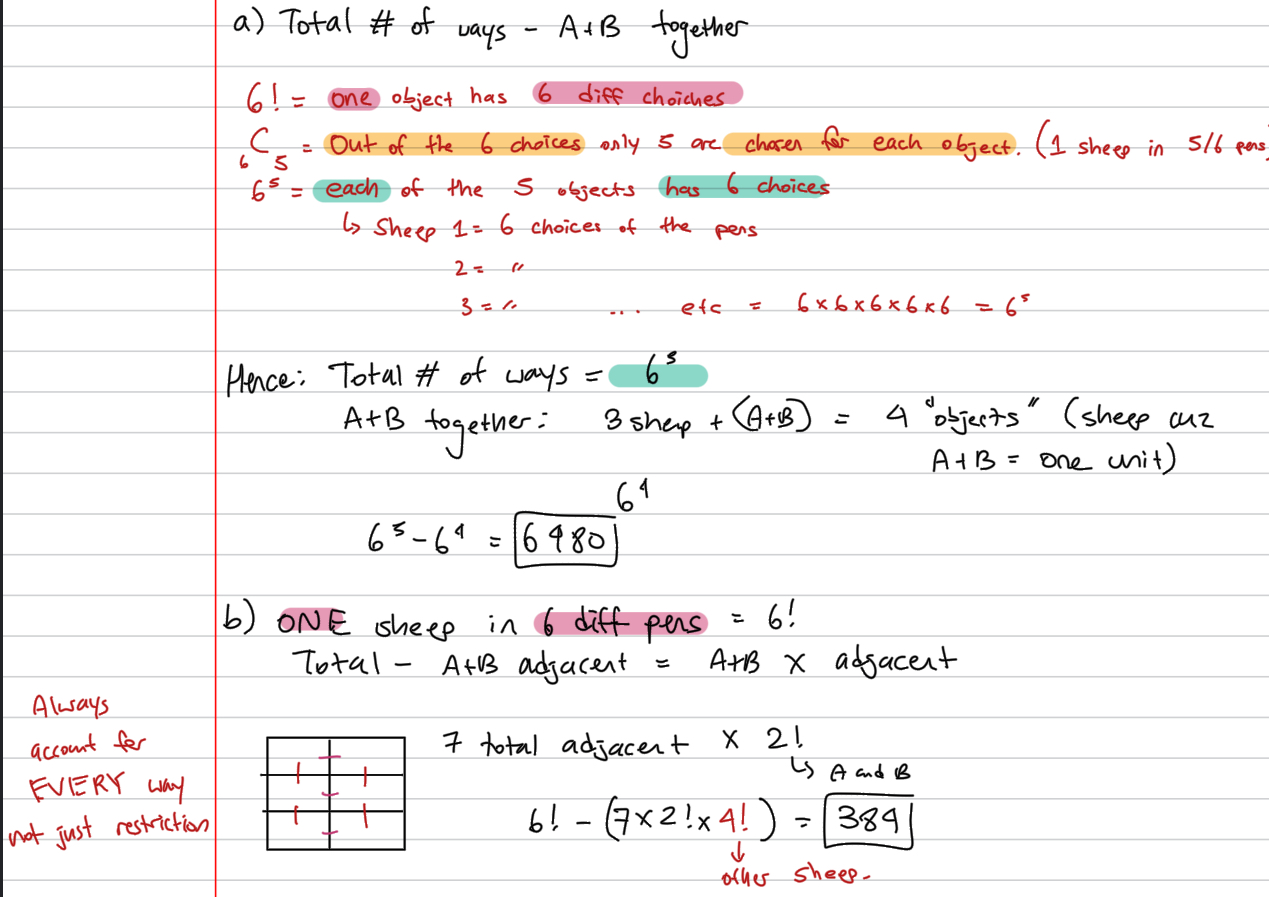 a) Total # of ways - A+B together
6! = one object has 6 diff choiches
₆C₅ = Out of the 6 choices only 5 are chosen for each object. (1 sheep in 5/6 pens)
6⁵ = each of the 5 objects has 6 choices
↳ Sheep 1 = 6 choices of the pens
2 = "
3 = " ... etc = 6×6×6×6×6 = 6⁵
Hence: Total # of ways = 6⁵
A+B together: 3 sheep + (A+B) = 4 "objects" (sheep cuz
A+B = one unit)
6⁴
6⁵-6⁴ = 6480
b) ONE sheep in 6 diff pens = 6!
Total - A+B adjacent = A+B × adjacent
Always
account for
EVERY way
not just restriction
7 total adjacent × 2!
↳ A and B
6! - (7×2!×4!) = 384
↓
other sheep.